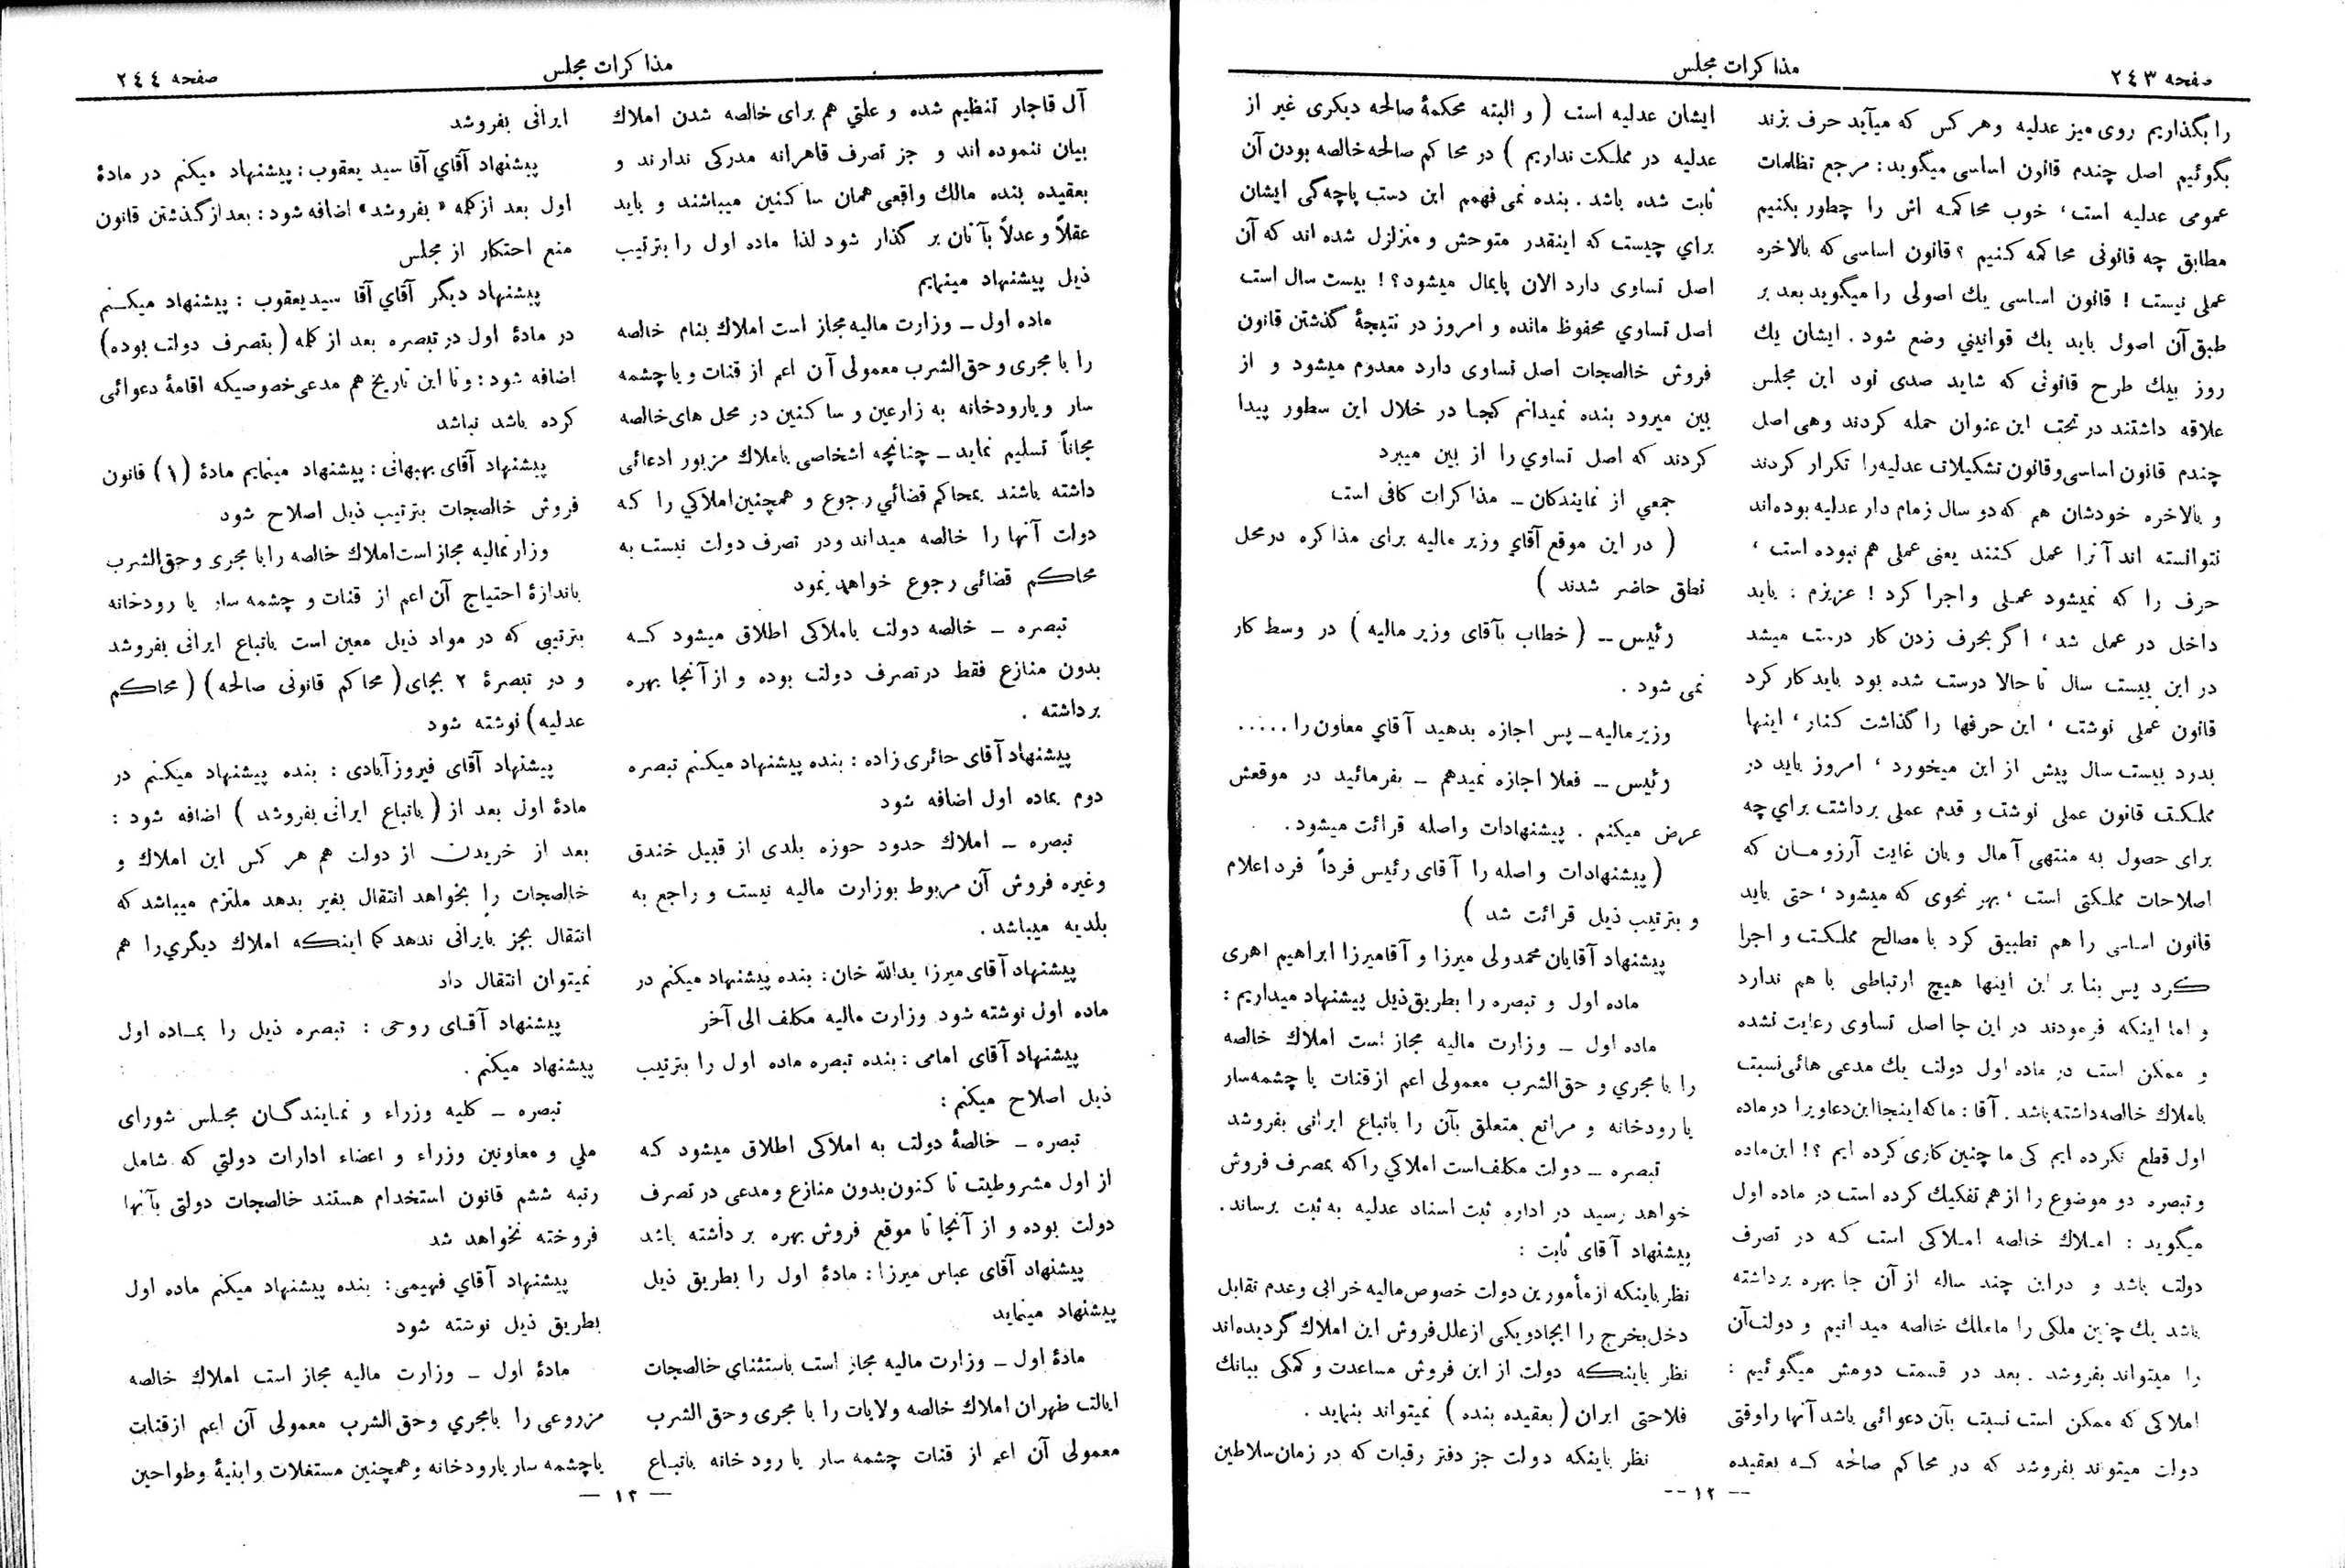 صفحه ۲۴۳
مذاکرات مجلس
را بگذاریم روی میز عدلیه وهر کس که میآید حرف بزند
بگوئیم اصل چندم قانون اساسی میگوید: مرجع تظلمات
عمومی عدلیه است، خوب محاکمه اش را چطور بکنیم
مطابق چه قانونی محاکمه کنیم ؟ قانون اساسی که بالاخره
عملی نیست ! قانون اساسی یك اصولی را میگوید بعد بر
طبق آن اصول باید یك قوانیني وضع شود . ایشان یك
روز بیك طرح قانونی که شاید صدی نود این مجلس
علاقه داشتند در تحت این عنوان حمله کردند وهی اصل
چندم قانون اساسی وقانون تشکیلات عدلیه را تکرار کردند
و بالاخره خودشان هم که دو سال زمام دار عدلیه بوده‌اند
نتوانسته اند آنرا عمل کنند یعنی عملی هم نبوده است ،
حرف را که نمیشود عملی واجرا کرد ! عزیزم : باید
داخل در عمل شد ، اگر بحرف زدن کار درست میشد
در این بیست سال تا حالا درست شده بود باید کار کرد
قانون عملی نوشت ، این حرفها را گذاشت کنار ، اینها
بدرد بیست سال پیش از این میخورد ، امروز باید در
مملکت قانون عملی نوشت و قدم عملی برداشت براي چه
برای حصول به منتهی آمال و بان غایت آرزومان که
اصلاحات مملکتی است ، بهر نحوی که میشود ، حتی باید
قانون اساسی را هم تطبیق کرد با مصالح مملکت و اجرا
کرد پس بنا بر این اینها هیچ ارتباطی با هم ندارد
و اما اینکه فرمودند در این جا اصل تساوی رعایت نشده
و ممکن است در ماده اول دولت یك مدعی هائی نسبت
باملاك خالصه داشته باشد . آقا : ما که اینجا این دعاویرا در ماده
اول قطع نکرده ایم کی ما چنین کاری کرده ایم ؟! این ماده
وتبصره دو موضوع را از هم تفکیك کرده است در ماده اول
میگوید : املاك خالصه املاکی است که در تصرف
دولت باشد و در این چند ساله از آن جا بهره برداشته
باشد یك چنین ملکی را ما ملك خالصه میدانیم و دولت آن
را میتواند بفروشد . بعد در قسمت دومش میگوئیم :
املاکی که ممکن است نسبت بآن دعوائی باشد آنها را وقتی
دولت میتواند بفروشد که در محاکم صالحه که بعقیده
ایشان عدلیه است ( و البته محکمهٔ صالحه دیکری غیر از
عدلیه در مملکت نداریم ) در محاکم صالحه خالصه بودن آن
ثابت شده باشد . بنده نمی فهمم این دست پاچه‌گی ایشان
براي چیست که اینقدر متوحش و متزلزل شده اند که آن
اصل تساوی دارد الان پایمال میشود ؟! بیست سال است
اصل تساوي محفوظ مانده و امروز در نتیجهٔ گذشتن قانون
فروش خالصجات اصل تساوی دارد معدوم میشود و از
بین میرود بنده نمیدانم کجا در خلال این سطور پیدا
کردند که اصل تساوي را از بین میبرد
جمعي از نمایندکان ــ مذاکرات کافی است
( در این موقع آقاي وزیر مالیه برای مذاکره درمحل
نطق حاضر شدند )
رئیس ــ ( خطاب بآقای وزیر مالیه ) در وسط کار
نمی شود .
وزیر مالیه ــ پس اجازه بدهید آقاي معاون را .....
رئیس ــ فعلا اجازه نمیدهم ــ بفرمائید در موقعش
عرض میکنم . پیشنهادات واصله قرائت میشود .
( پیشنهادات واصله را آقای رئیس فرداً فرد اعلام
و بترتیب ذیل قرائت شد )
پیشنهاد آقایان محمدولی میرزا و آقامیرزا ابراهیم اهری
ماده اول و تبصره را بطریق ذیل پیشنهاد میداریم :
ماده اول ــ وزارت مالیه مجاز است املاك خالصه
را با مجري و حق الشرب معمولی اعم از قنات یا چشمه‌سار
یا رودخانه و مراتع متعلق بآن را باتباع ایرانی بفروشد
تبصره ــ دولت مکلف است املاکي را که بمصرف فروش
خواهد رسید در اداره ثبت اسناد عدلیه به ثبت برساند .
پیشنهاد آقای ثابت :
نظر باینکه از مأمورین دولت خصوص مالیه خرابی وعدم تقابل
دخل بخرج را ایجاد و یکی از علل فروش این املاك گردیده‌اند
نظر باینکه دولت از این فروش مساعدت و کمکی ببانك
فلاحتی ایران ( بعقیده بنده ) نمیتواند بنماید .
نظر باینکه دولت جز دفتر رقبات که در زمان سلاطین
-- ۱۲ --
مذاکرات مجلس
صفحه ۲٤٤
آل قاجار تنظیم شده و علتي هم برای خالصه شدن املاك
بیان ننموده اند و جز تصرف قاهرانه مدرکی ندارند و
بعقیده بنده مالك واقعی همان ساکنین میباشند و باید
عقلاً و عدلاً بآنان بر گذار شود لذا ماده اول را بترتیب
ذیل پیشنهاد مینمایم
ماده اول ــ وزارت مالیه مجاز است املاك بنام خالصه
را با مجری و حق الشرب معمولی آن اعم از قنات و یا چشمه
سار و یارودخانه به زارعین و ساکنین در محل های خالصه
مجاناً تسلیم نماید ــ چنانچه اشخاصی باملاك مزبور ادعائی
داشته باشند بمحاکم قضائي رجوع و همچنین املاکي را که
دولت آنها را خالصه میداند ودر تصرف دولت نیست به
محاکم قضائی رجوع خواهد نمود
تبصره ــ خالصه دولت باملاکی اطلاق میشود که
بدون منازع فقط در تصرف دولت بوده و از آنجا بهره
برداشته .
پیشنهاد آقای حائری زاده : بنده پیشنهاد میکنم تبصره
دوم بماده اول اضافه شود
تبصره ــ املاك حدود حوزه بلدی از قبیل خندق
وغیره فروش آن مربوط بوزارت مالیه نیست و راجع به
بلدیه میباشد .
پیشنهاد آقای میرزا یدالله خان : بنده پیشنهاد میکنم در
ماده اول نوشته شود وزارت مالیه مکلف الی آخر
پیشنهاد آقای امامی : بنده تبصره ماده اول را بترتیب
ذیل اصلاح میکنم :
تبصره ــ خالصهٔ دولت به املاکی اطلاق میشود که
از اول مشروطیت تا کنون بدون منازع و مدعی در تصرف
دولت بوده و از آنجا تا موقع فروش بهره بر داشته باشد
پیشنهاد آقای عباس میرزا : مادهٔ اول را بطریق ذیل
پیشنهاد مینماید
مادهٔ اول ــ وزارت مالیه مجاز است باستثنای خالصجات
ایالت طهران املاك خالصه ولایات را با مجری وحق الشرب
معمولی آن اعم از قنات چشمه سار یا رود خانه باتباع
ایرانی بفروشد
پیشنهاد آقاي آقا سید یعقوب : پیشنهاد میکنم در مادهٔ
اول بعد از کلمه « بفروشد » اضافه شود : بعد از گذشتن قانون
منع احتکار از مجلس
پیشنهاد دیگر آقاي آقا سید یعقوب : پیشنهاد میکنم
در مادهٔ اول در تبصره بعد از کلمه ( بتصرف دولت بوده )
اضافه شود : و تا این تاریخ هم مدعی خصوصیکه اقامهٔ دعوائی
کرده باشد نباشد
پیشنهاد آقای بهبهانی : پیشنهاد مینمایم مادهٔ (۱) قانون
فروش خالصجات بترتیب ذیل اصلاح شود
وزارتمالیه مجاز است املاك خالصه را با مجری و حق الشرب
باندازهٔ احتیاج آن اعم از قنات و چشمه سار یا رودخانه
بترتیبی که در مواد ذیل معین است باتباع ایرانی بفروشد
و در تبصرهٔ ۲ بجای ( محاکم قانونی صالحه ) ( محاکم
عدلیه ) نوشته شود
پیشنهاد آقای فیروزآبادی : بنده پیشنهاد میکنم در
مادهٔ اول بعد از ( باتباع ایرانی بفروشد ) اضافه شود :
بعد از خریدن از دولت هم هر کس این املاك و
خالصجات را بخواهد انتقال بغیر بدهد ملتزم میباشد که
انتقال بجز بایرانی ندهد کما اینکه املاك دیگري را هم
نمیتوان انتقال داد
پیشنهاد آقای روحی : تبصره ذیل را بماده اول
پیشنهاد میکنم .
تبصره ــ کلیه وزراء و نمایندگان مجلس شورای
ملي و معاونین وزراء و اعضاء ادارات دولتي که شامل
رتبه ششم قانون استخدام هستند خالصجات دولتی بآنها
فروخته نخواهد شد
پیشنهاد آقاي فهیمی : بنده پیشنهاد میکنم ماده اول
بطریق ذیل نوشته شود
مادهٔ اول ــ وزارت مالیه مجاز است املاك خالصه
مزروعی را بامجري وحق الشرب معمولی آن اعم ازقنات
یاچشمه سار یارودخانه وهمچنین مستغلات وابنیهٔ وطواحین
— ۱۳ —